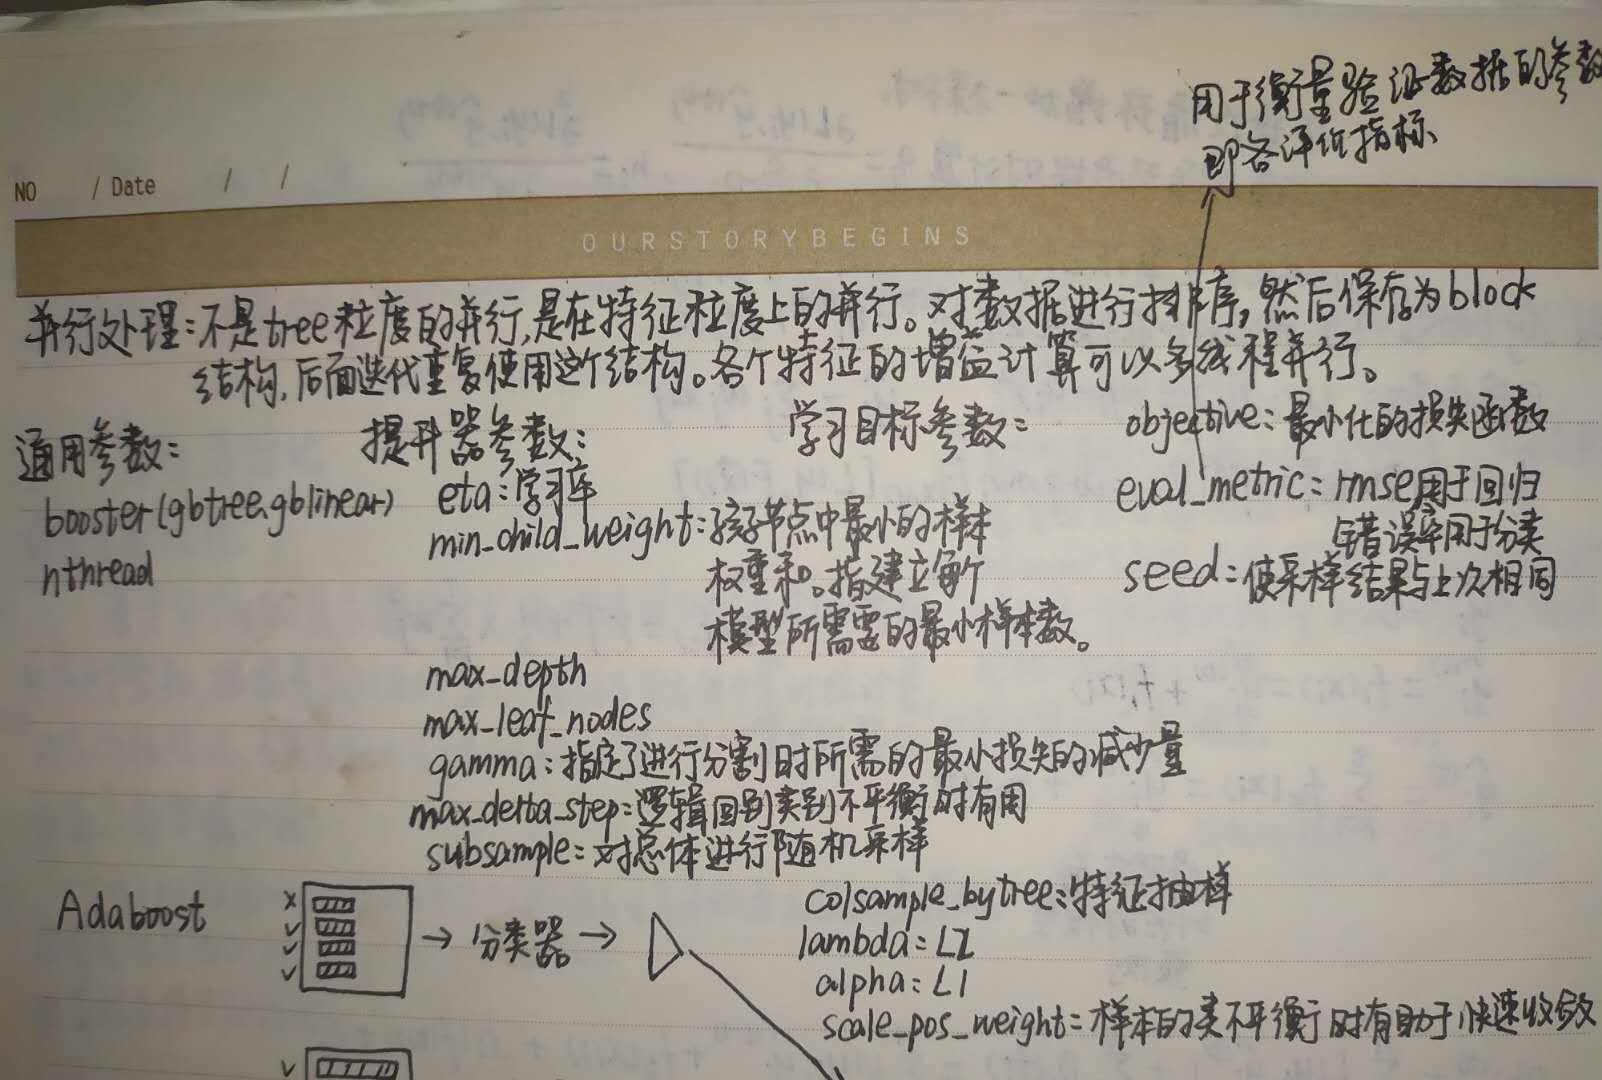 用于衡量验证数据的参数
即各评价指标
NO / Date / /
OURSTORYBEGINS
并行处理:不是tree粒度的并行,是在特征粒度上的并行。对数据进行排序,然后保存为block
结构,后面迭代重复使用这个结构。各个特征的增益计算可以多线程并行。
通用参数:
booster(gbtree、gblinear)
nthread
提升器参数:
eta:学习率
min_child_weight:孩子节点中最小的样本
权重和。指建立每个
模型所需要的最小样本数。
max_depth
max_leaf_nodes
gamma:指定了进行分割时所需的最小损失的减少量
max_delta_step:逻辑回归类别不平衡时有用
subsample:对总体进行随机采样
colsample_bytree:特征抽样
lambda:L2
alpha:L1
scale_pos_weight:样本的类不平衡时有助于快速收敛
学习目标参数:
objective:最小化的损失函数
eval_metric:rmse用于回归
错误率用于分类
seed:使采样结果与上次相同
Adaboost
分类器